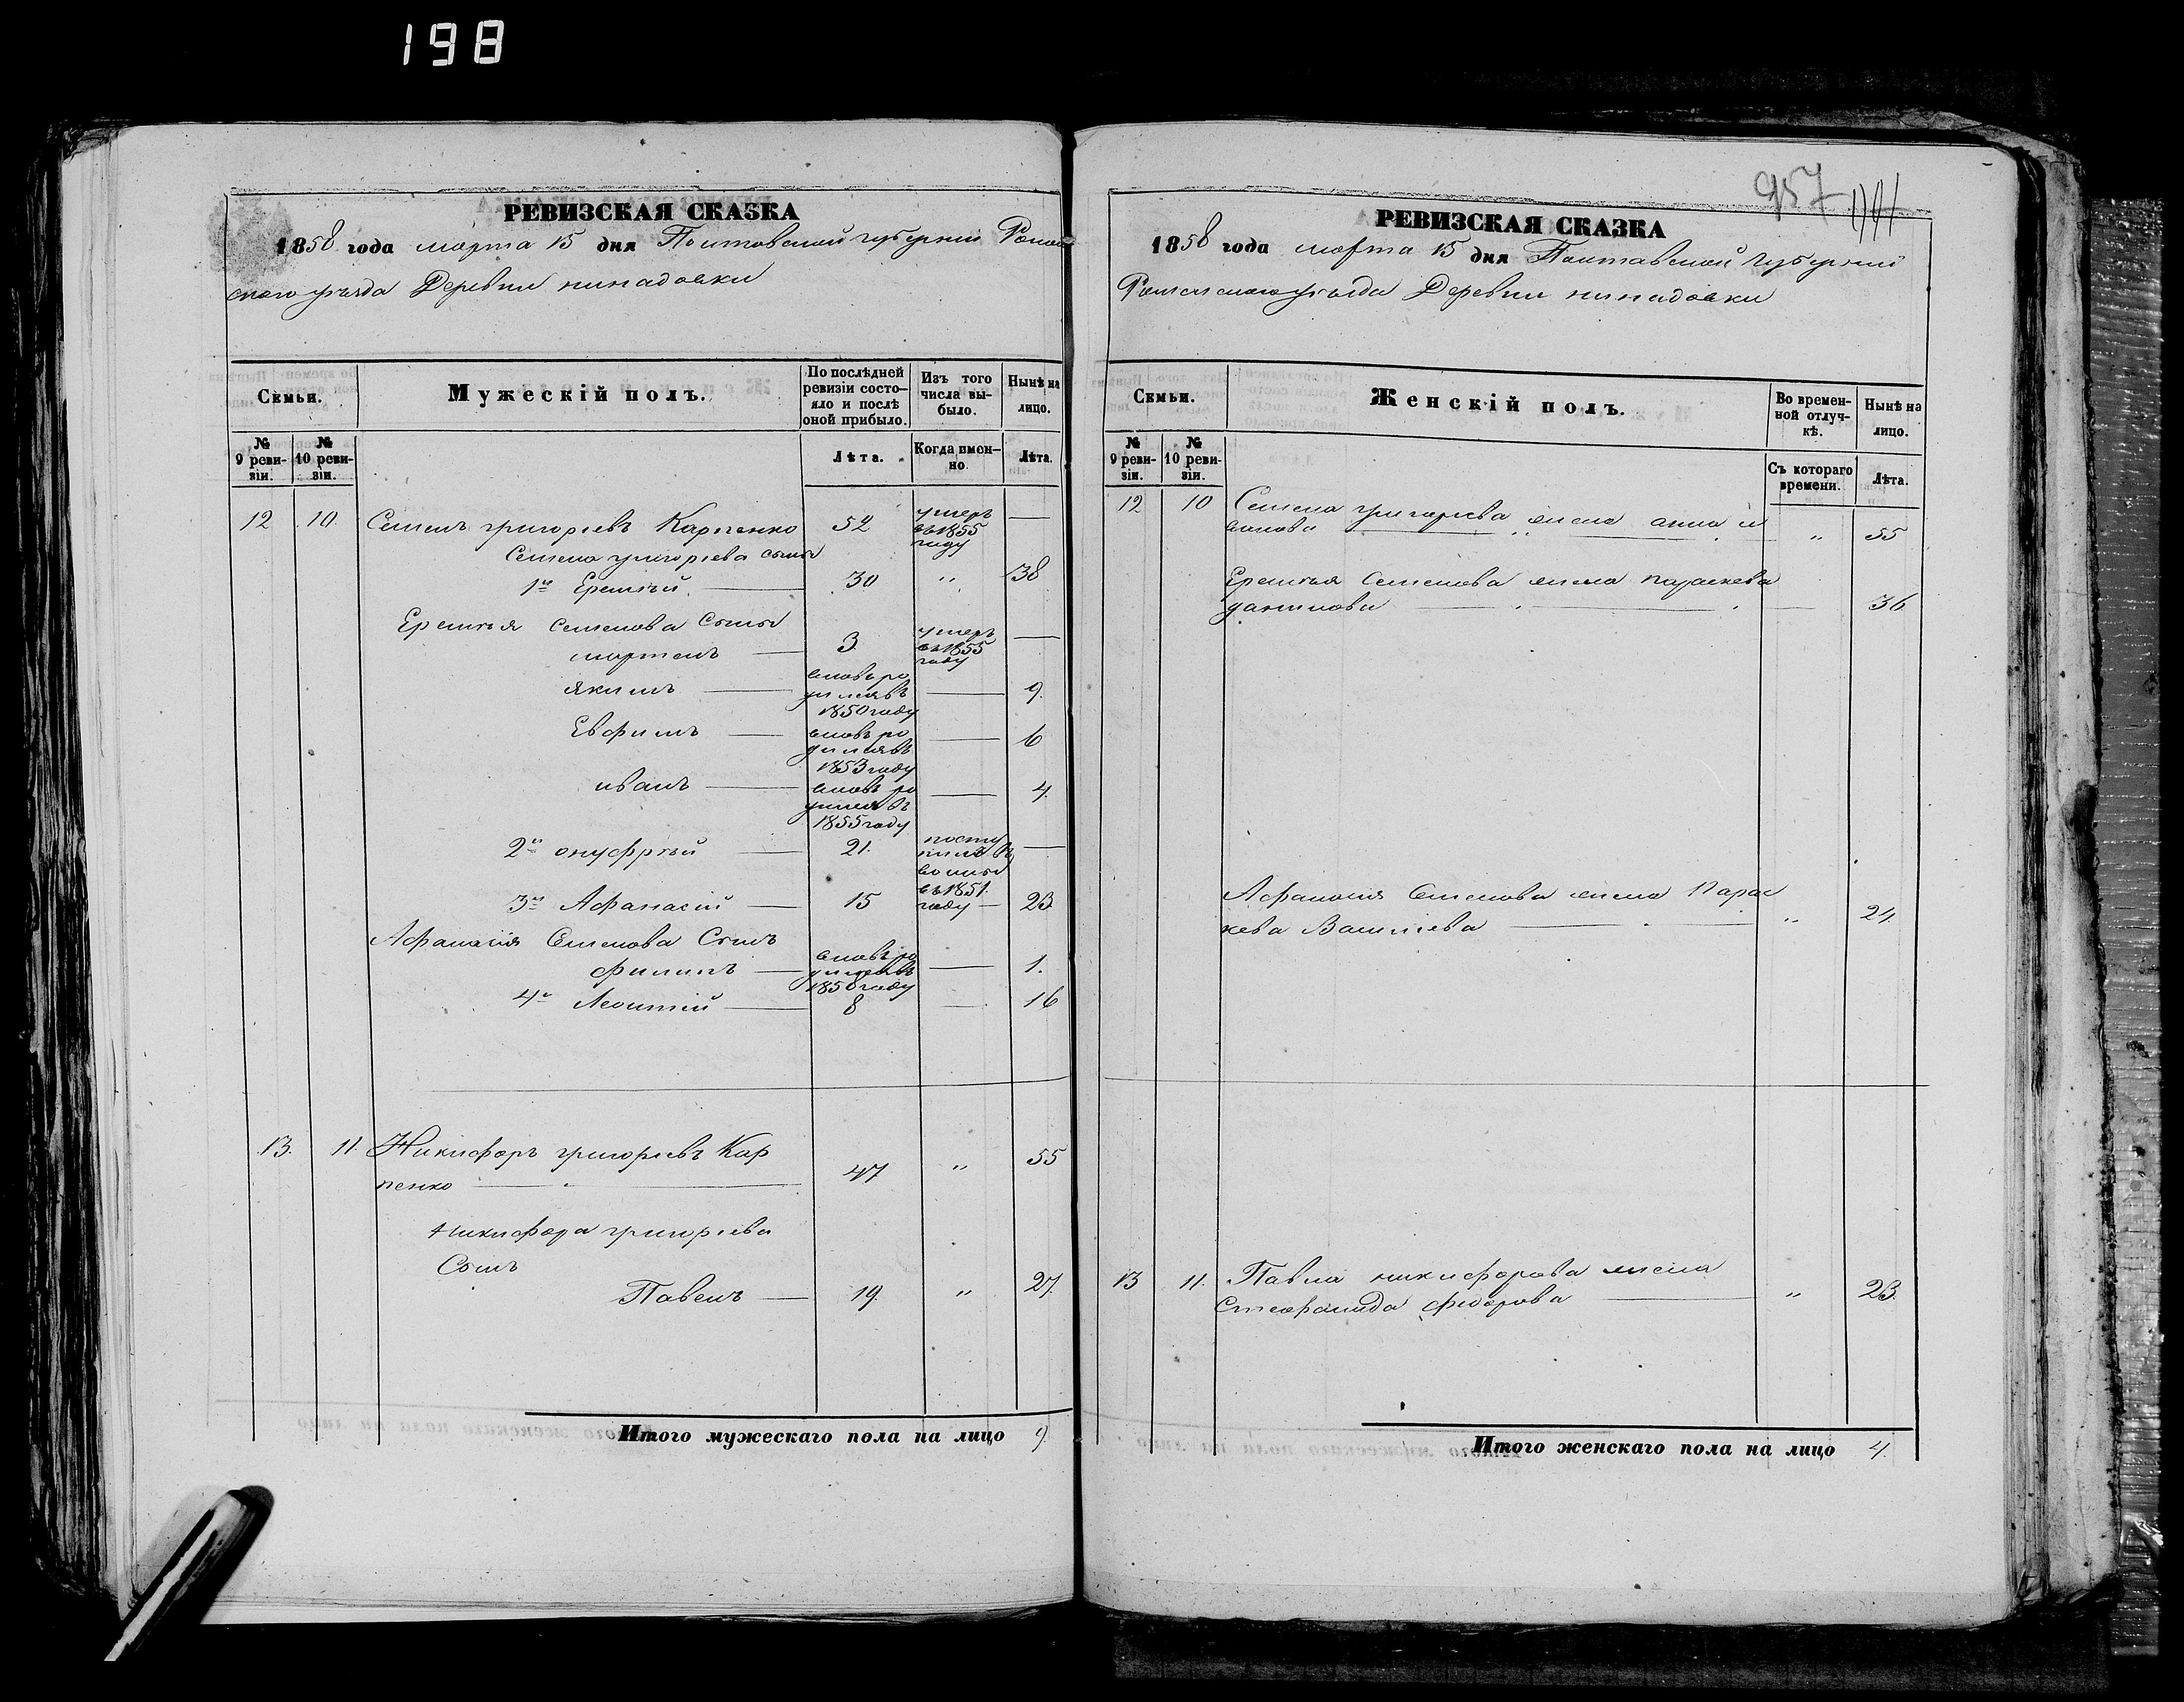 198
РЕВИЗСКАЯ СКАЗКА
1858 года марта 15 дня Полтавской губерніи Ромен
скаго уѣзда Деревни
Семьи.
Мужескій полъ.
По послѣдней ревизіи состо-
яло и послѣ
оной прибыло.
Изъ того
числа вы-
было.
Нынѣ на
лицо.
№ 9 реви-
зіи.
№ 10 реви-
зіи.
Лѣта.
Когда имен-
но.
Лѣта.
12 10. Семенъ григорьевъ Карпенко 52 умеръ
въ 1855
году
Семена григорьева сыны
1й Еремѣй. 30 " 38
Еремѣя Семенова Сыны
мартенъ 3. умеръ
въ 1855
году
якимъ вновь ро
дился въ
1850 году 9.
Евфимъ вновь ро
дился въ
1853 году 6
иванъ вновь ро
дился въ
1855 году 4.
2й онуфрѣй 21. посту
пилъ въ
воины
въ 1851.
году
3й Афанасій 15 23
Афанасія Семенова Сынъ
филипъ вновь ро
дился въ
1858 году 1.
4й Леонтій 8 16
13. 11. Никифоръ григорьевъ Кар
пенко 47 " 55
Никифора григорьева
Сынъ
Павелъ 19. " 27.
Итого мужескаго пола на лицо 9.
957
РЕВИЗСКАЯ СКАЗКА
1858 года марта 15 дня Полтавской губерніи
Роменскаго уѣзда Деревни
Семьи.
Женскій полъ.
Во времен-
ной отлуч-
кѣ.
Нынѣ на
лицо.
№ 9 реви-
зіи.
№ 10 реви-
зіи.
Съ котораго
времени.
Лѣта.
12 10 Семена григорьева жена анна и
ванова " 55
Еремѣя Семенова жена параскева
данилова 36
Афанасія Семенова жена Парас
кева Васильева " 24
13 11. Павла никифорова жена
Стефанида федорова " 23.
Итого женскаго пола на лицо 4.